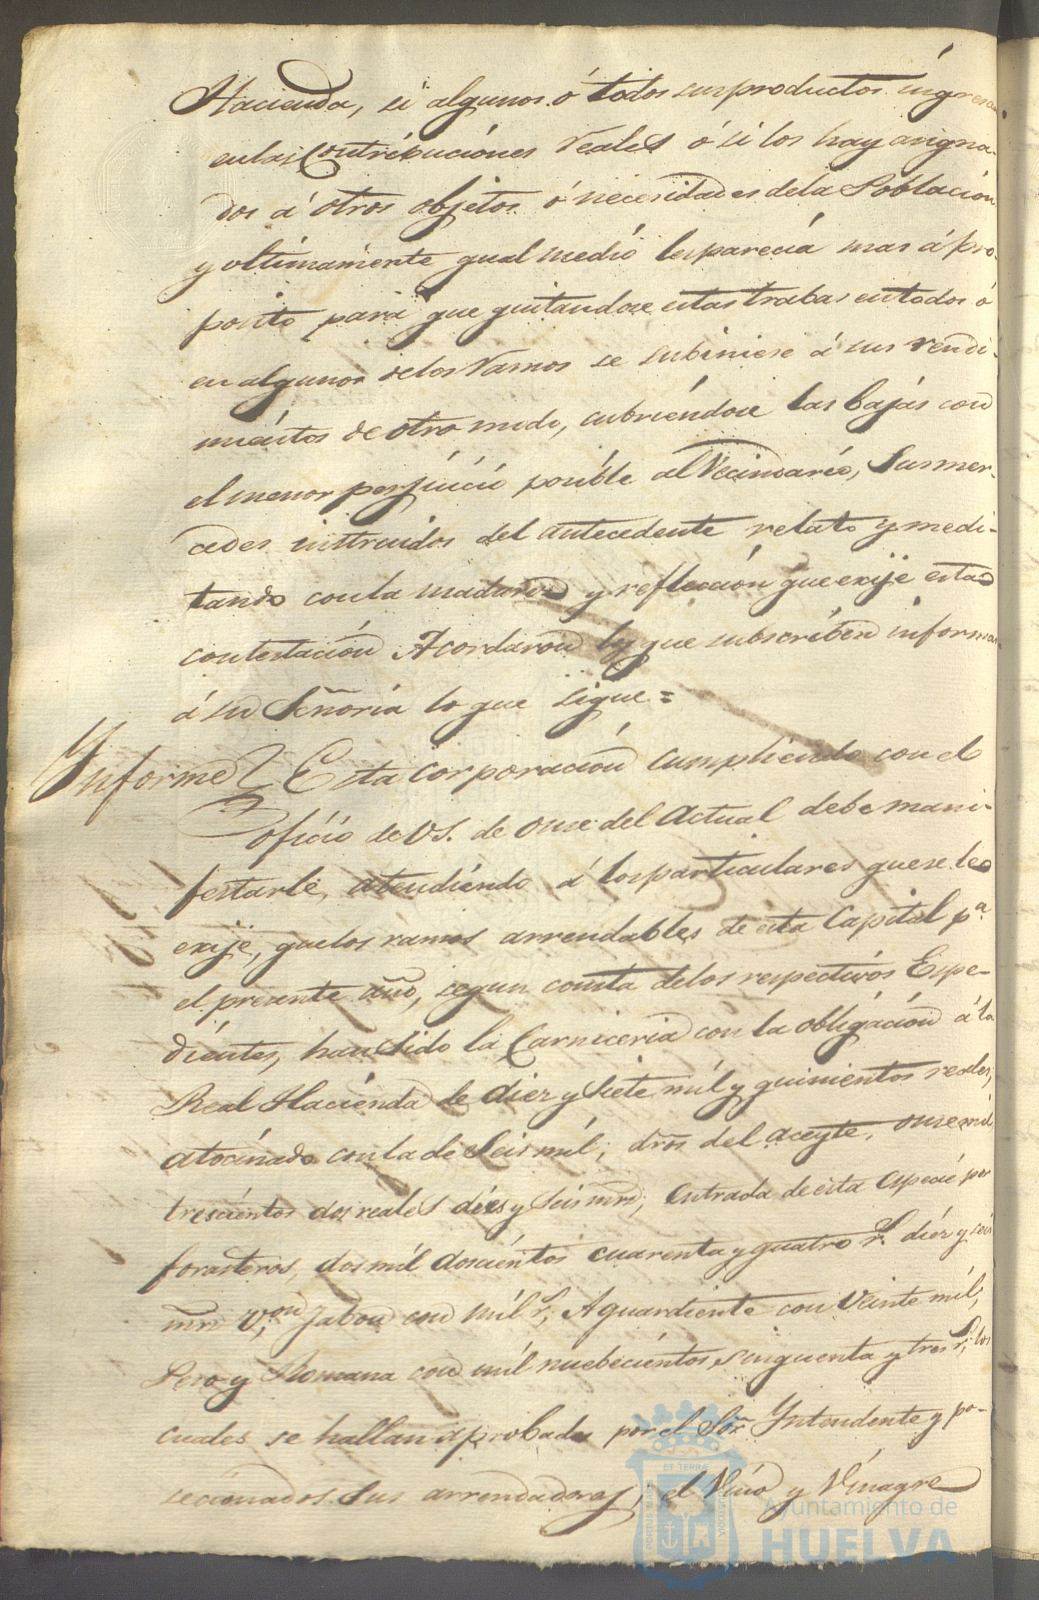 Hacienda, si algunos ó todos sus productos ingresan
en las Contribuciónes reales ó si los hay asigna-
dos á otros objetos ó necesidades de la Poblacion
y ultimamente qual medio les parecia mas á pro-
posito para que quitandose estas trabas en todos ó
en algunos de los ramos se subiniese á sus rendi-
mientos de otro modo, cubriéndose las bajas con
el menor perjuicio posible al Vecindario, Sus mer-
cedes instruidos del antecedente relato y medi-
tando con la madures y reflección que exije esta
contestación Acordaron los que subscriben informar
á su Señoria lo que sigue=
Ynforme Esta corporación cumpliendo con el
oficio de VS. de onse del Actual debe mani-
festarle, atendiéndo á los particulares que se le
exije, que los ramos arrendables de esta Capital pª
el presente año, segun consta de los respectivos Espe-
diéntes, han sido la Carniceria con la obligación á la
Real Haciénda de diez y siete mil y quinientos reales;
atocinado con la de Seis mil; dros del aceyte, onse mil
trescientos dos reales diez y seis mrs; entrada de esta especie por
forasteros, dos mil doscientos cuarenta y quatro rs. diéz y seis
mrs von. Jabon con mil rs; Aguardiente con Veinte mil;
Peso y Romana con mil nuebecientos sinquenta y tres rs; los
cuales se hallan aprobados por el Sor Yntendente y po-
secionados sus arrendadores, el Vino y Vinagre
Ayuntamiento de
HUELVA